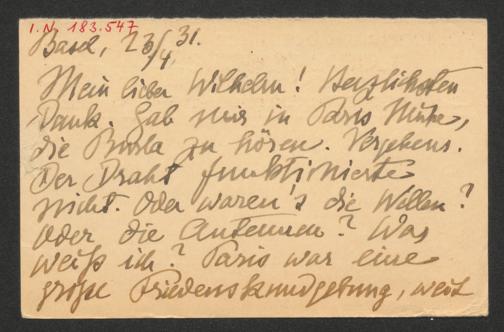 I.N. 183.547
Basel, 23/4 31.
Mein lieber Wilhelm! Herzlichsten
Dank. Gab mir in Paris Mühe,
die Bursla zu hören. Vergebens.
Der Draht funktionierte
nicht. Oder waren's die Wellen?
Oder die Antennen? Was
weiß ich? Paris war eine
große Friedenskundgebung, weit